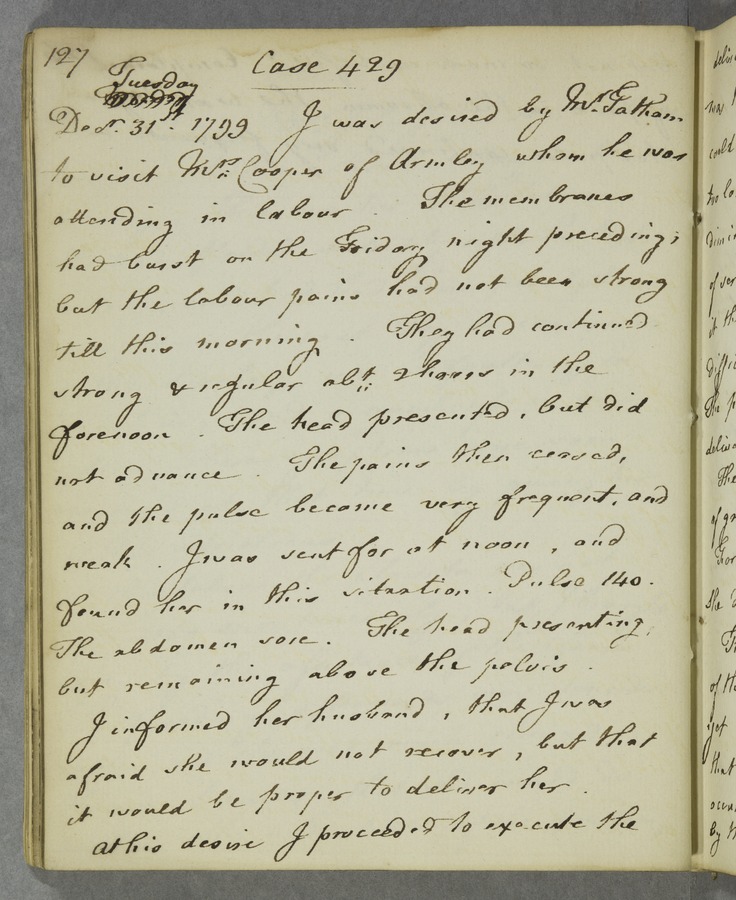 127
Case 429
Tuesday
Decr. 31st. 1799 I was desired by Mr. Tatham
to visit Mrs. Cooper of Armley whom he was
attending in labour. The membranes
had burst on the Friday night preceding;
but the labour pains had not been strong
till this morning. They had continued
strong & regular abt. 2 hours in the
forenoon. The head presented, but did
not advance. The pains then ceased,
and the pulse became very frequent, and
weak. I was sent for at noon, and
found her in this situation. Pulse 140.
The abdomen sore. The head presenting,
but remaining above the pelvis.
I informed her husband, that I was
afraid she would not recover, but that
it would be proper to deliver her.
At his desire I proceeded to execute the